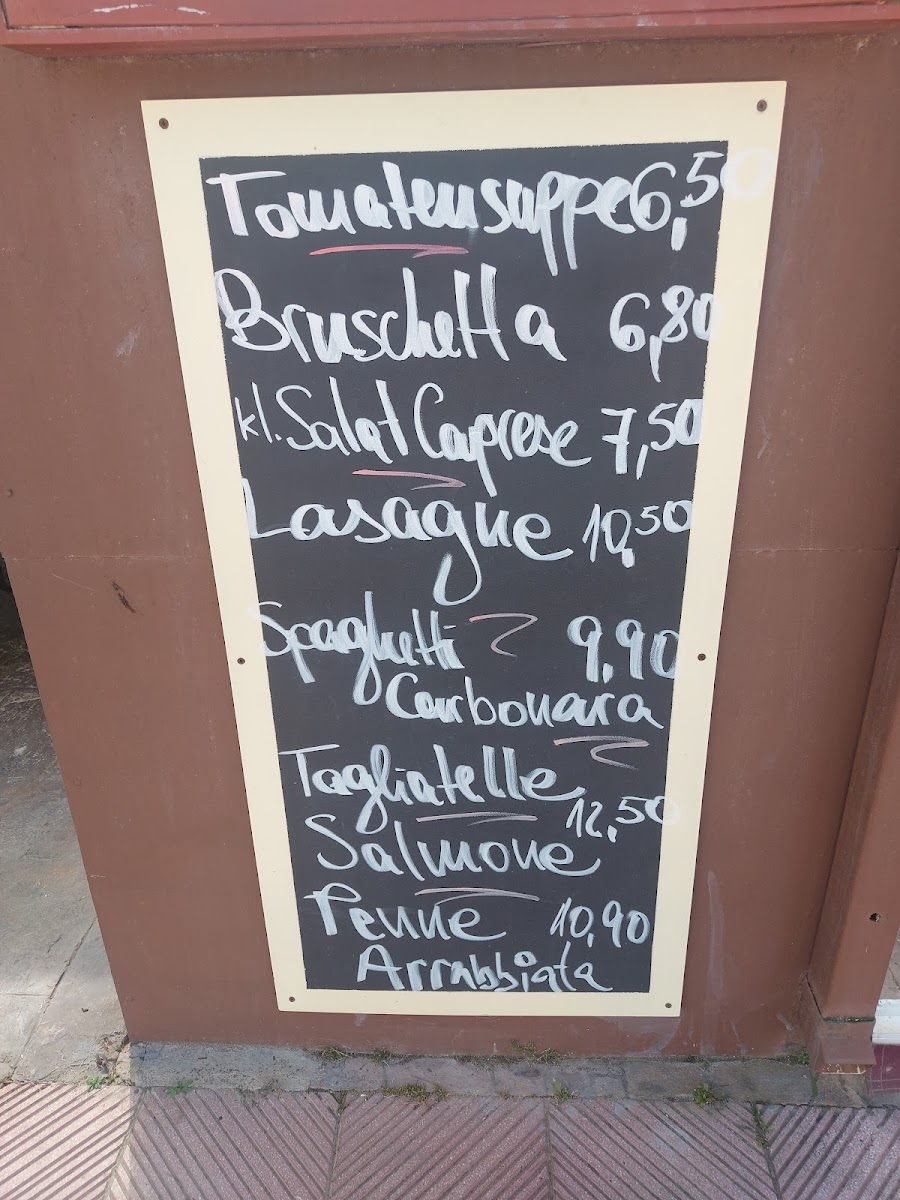 Tomatensuppe 6,50
Bruschetta 6,80
kl. Salat Caprese 7,50
Lasagne 10,50
Spaghetti 9,90
Carbonara
Tagliatelle
12,50
Salmone
Penne 10,90
Arrabbiata